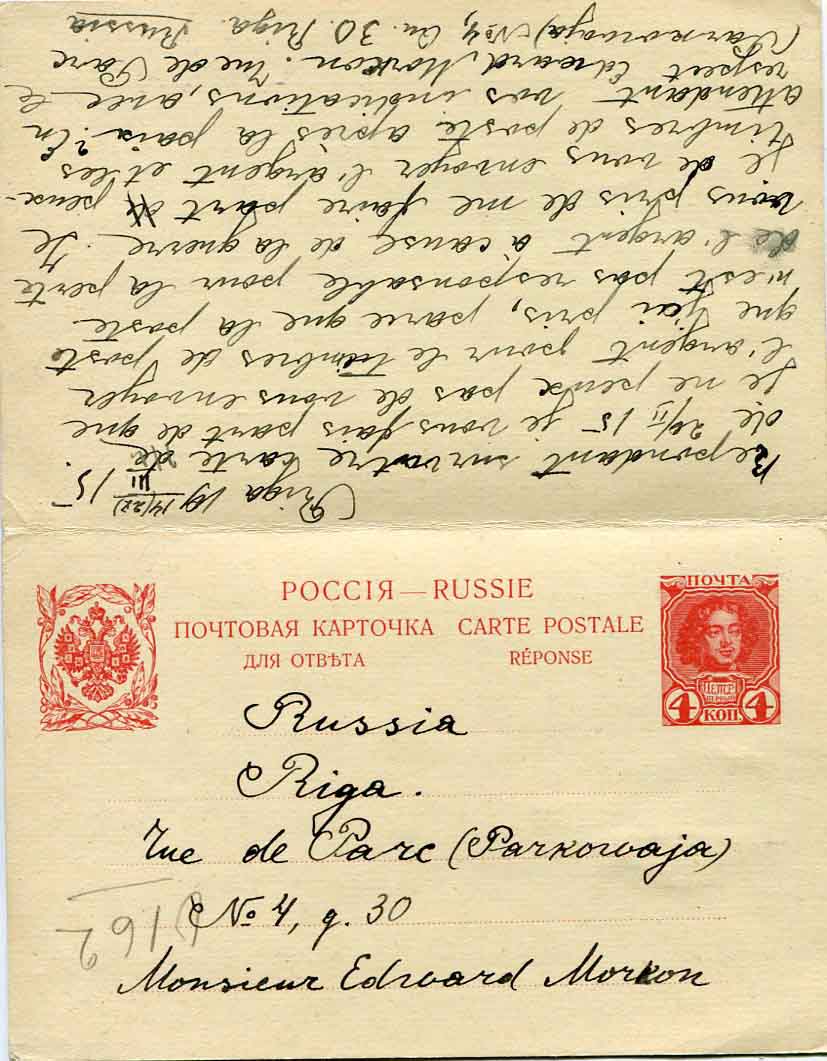 Riga 19 14(27)/III 15.
Repondant sur votre carte de
de 26/II 15 je vous fais part de que
Je ne peux pas de vous envoyer
l'argent pour le timbres de poste
que j'ai pris, parce que la poste
n'est pas responsable pour la perte
de l'argent à cause de la guerre. Je
vous pris de me faire part peux-
je de vous envoyer l'argent et les
timbres de poste après la paix? En
attendant vos indications, avec le
respect Edward Morkon. Rue de Parc
(Parkowaja) No 4, qu. 30. Riga. Russia
РОССІЯ — RUSSIE
ПОЧТОВАЯ КАРТОЧКА CARTE POSTALE
ДЛЯ ОТВѢТА RÉPONSE
ПОЧТА
ПЕТРЪ
ПЕРВЫЙ
4 КОП 4
Russia
Riga.
Rue de Parc (Parkowaja)
No 4, q. 30
Monsieur Edward Morkon